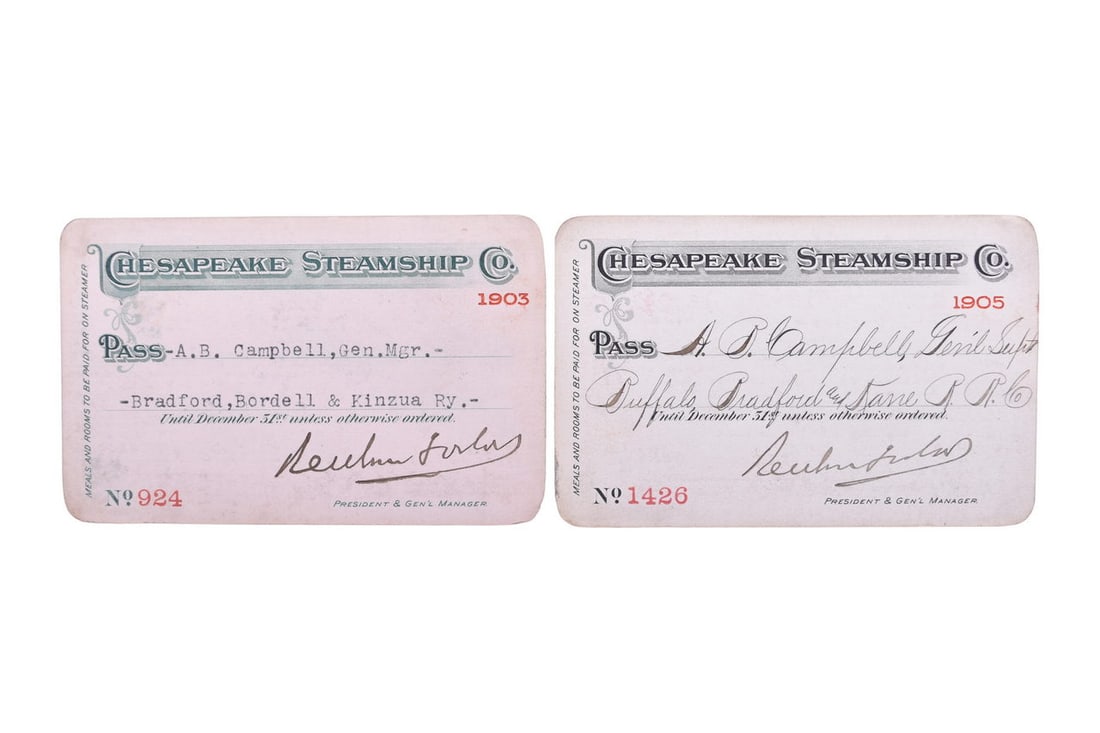 MEALS AND ROOMS TO BE PAID FOR ON STEAMER
CHESAPEAKE STEAMSHIP CO.
1903
PASS-A.B. Campbell,Gen.Mgr.-
-Bradford,Bordell & Kinzua Ry.-
Until December 31st unless otherwise ordered.
No 924
PRESIDENT & GEN'L MANAGER
MEALS AND ROOMS TO BE PAID FOR ON STEAMER
CHESAPEAKE STEAMSHIP CO.
1905
PASS A. B. Campbell, Gen'l Supt
Buffalo Bradford & Kane R. R. Co
Until December 31st unless otherwise ordered.
No 1426
PRESIDENT & GEN'L MANAGER